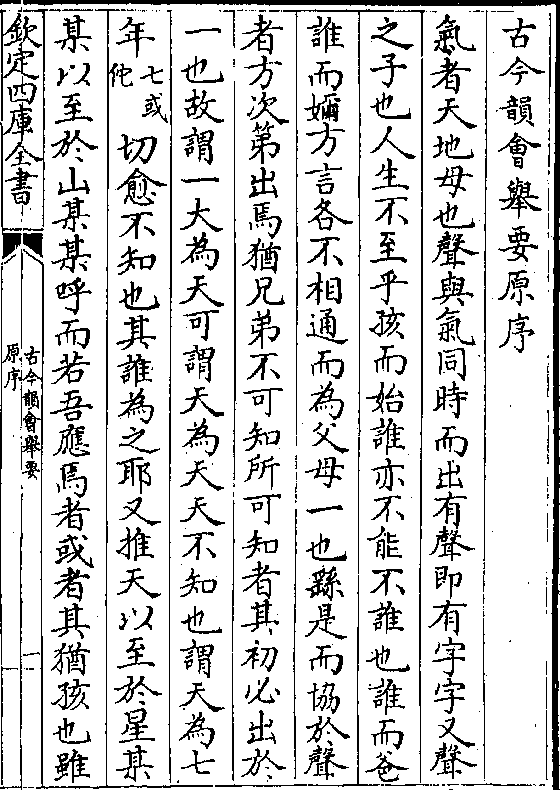 古今韻會舉要原序
氣者天地母也聲與氣同時而出有聲即有字字又聲
之子也人生不至乎孩而始誰亦不能不誰也誰而爸
誰而嬭方言各不相通而為父母一也繇是而協於聲
者方次第出焉猶兄弟不可知所可知者其初必出於
一也故謂一大為天可謂天為天天不知也謂天為七
年七或佗切愈不知也其誰為之耶又推天以至於星某
某以至於山某某呼而若吾應焉者或者其猶孩也雖
欽定四庫全書
古今韻會舉要
原序
一